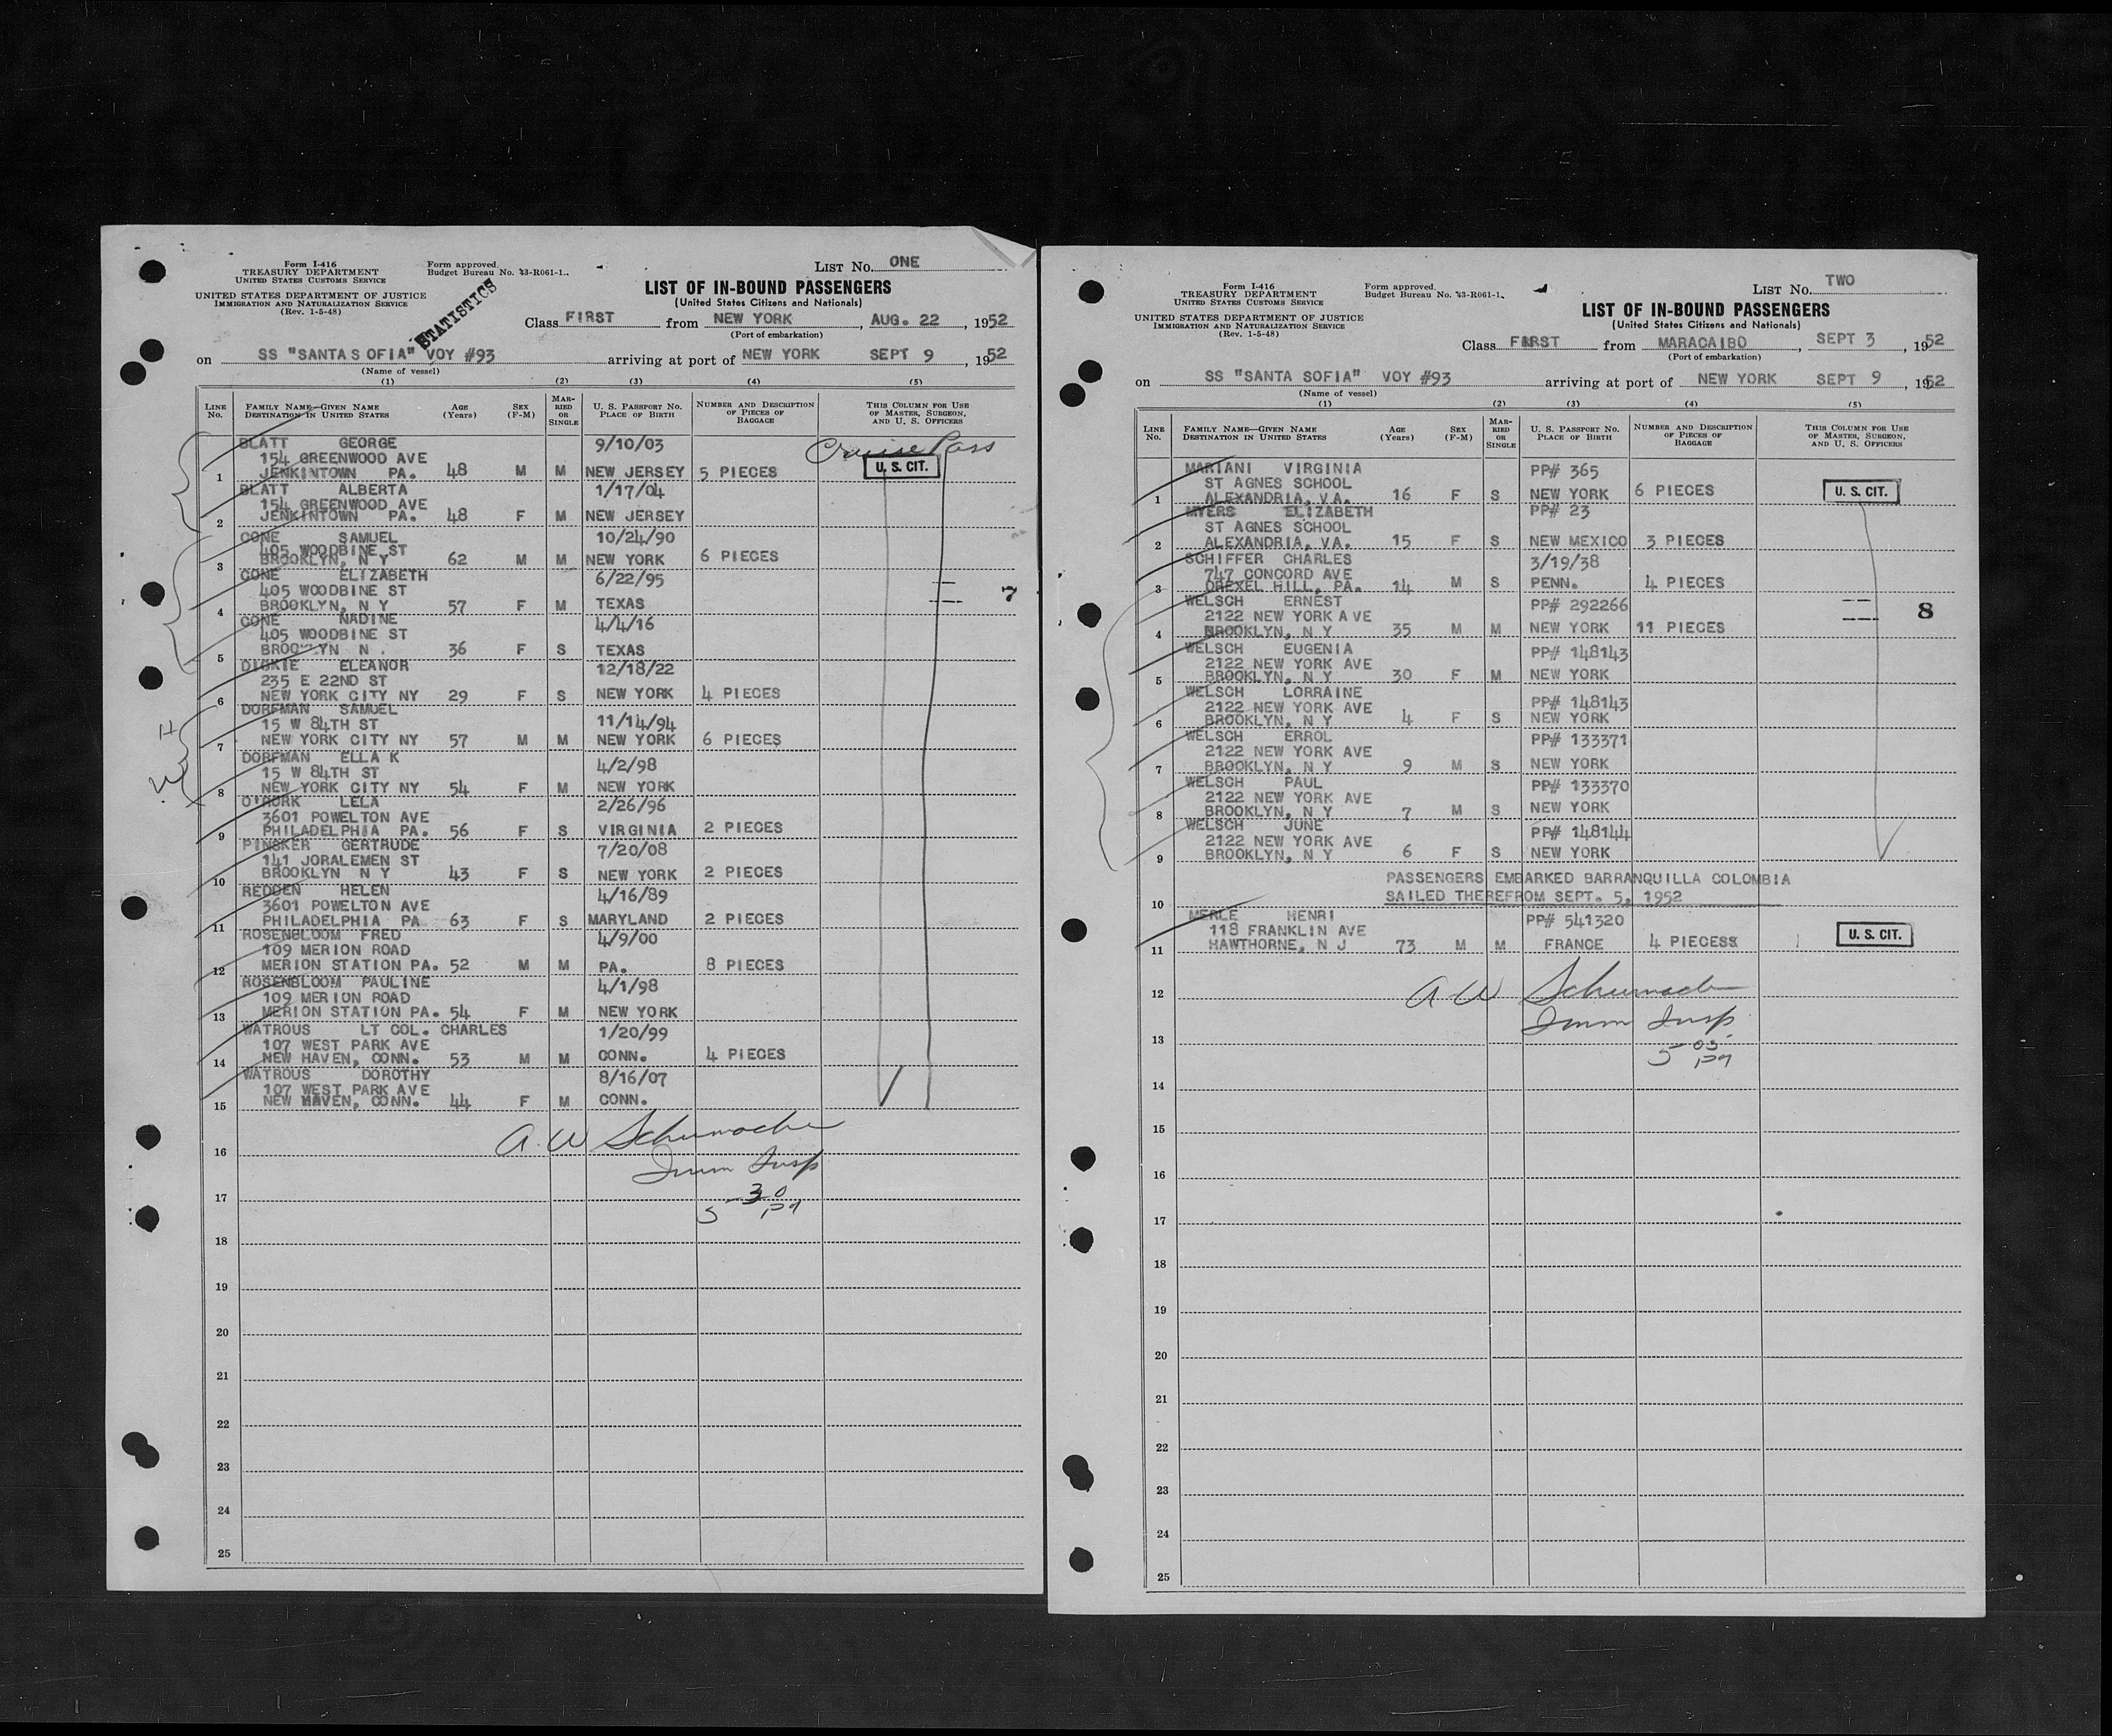 Form I-416
TREASURY DEPARTMENT
UNITED STATES CUSTOMS SERVICE
UNITED STATES DEPARTMENT OF JUSTICE
IMMIGRATION AND NATURALIZATION SERVICE
(Rev. 1-5-48)
Form approved.
Budget Bureau No. 43-R061-1.
STATISTICS
LIST No. ONE
LIST OF IN-BOUND PASSENGERS
(United States Citizens and Nationals)
Class FIRST from NEW YORK, AUG. 22, 1952
(Port of embarkation)
on SS "SANTA SOFIA" VOY #93 arriving at port of NEW YORK SEPT 9, 1952
(Name of vessel)
(1) (2) (3) (4) (5)
LINE No. FAMILY NAME—GIVEN NAME DESTINATION IN UNITED STATES AGE (Years) SEX (F-M) MARRIED OR SINGLE U. S. PASSPORT No. PLACE OF BIRTH NUMBER AND DESCRIPTION OF PIECES OF BAGGAGE THIS COLUMN FOR USE OF MASTER, SURGEON, AND U. S. OFFICERS
Cruise Pass
U. S. CIT.
BLATT GEORGE 9/10/03
154 GREENWOOD AVE
1 JENKINTOWN PA. 48 M M NEW JERSEY 5 PIECES
BLATT ALBERTA 1/17/04
154 GREENWOOD AVE
2 JENKINTOWN PA. 48 F M NEW JERSEY
CONE SAMUEL 10/24/90
405 WOODBINE ST
3 BROOKLYN, N Y 62 M M NEW YORK 6 PIECES
CONE ELIZABETH 6/22/95
405 WOODBINE ST
4 BROOKLYN, N Y 57 F M TEXAS
7
CONE NADINE 4/4/16
405 WOODBINE ST
5 BROOKLYN N . 36 F S TEXAS
DICKIE ELEANOR 12/18/22
235 E 22ND ST
6 NEW YORK CITY NY 29 F S NEW YORK 4 PIECES
DORFMAN SAMUEL 11/14/94
15 W 84TH ST
7 NEW YORK CITY NY 57 M M NEW YORK 6 PIECES
DORFMAN ELLA K 4/2/98
15 W 84TH ST
8 NEW YORK CITY NY 54 F M NEW YORK
O'RORK LELA 2/26/96
3601 POWELTON AVE
9 PHILADELPHIA PA. 56 F S VIRGINIA 2 PIECES
PINSKER GERTRUDE 7/20/08
141 JORALEMEN ST
10 BROOKLYN N Y 43 F S NEW YORK 2 PIECES
REDDEN HELEN 4/16/89
3601 POWELTON AVE
11 PHILADELPHIA PA 63 F S MARYLAND 2 PIECES
ROSENBLOOM FRED 4/9/00
109 MERION ROAD
12 MERION STATION PA. 52 M M PA. 8 PIECES
ROSENBLOOM PAULINE 4/1/98
109 MERION ROAD
13 MERION STATION PA. 54 F M NEW YORK
WATROUS LT COL. CHARLES 1/20/99
107 WEST PARK AVE
14 NEW HAVEN, CONN. 53 M M CONN. 4 PIECES
WATROUS DOROTHY 8/16/07
107 WEST PARK AVE
15 NEW HAVEN, CONN. 44 F M CONN.
A. W Schumacher
16
Imm Insp
17
5 30 PM
18
19
20
21
22
23
24
25
Form I-416
TREASURY DEPARTMENT
UNITED STATES CUSTOMS SERVICE
UNITED STATES DEPARTMENT OF JUSTICE
IMMIGRATION AND NATURALIZATION SERVICE
(Rev. 1-5-48)
Form approved.
Budget Bureau No. 43-R061-1.
LIST No. TWO
LIST OF IN-BOUND PASSENGERS
(United States Citizens and Nationals)
Class FIRST from MARACAIBO, SEPT 3, 1952
(Port of embarkation)
on SS "SANTA SOFIA" VOY #93 arriving at port of NEW YORK SEPT 9, 1952
(Name of vessel)
(1) (2) (3) (4) (5)
LINE No. FAMILY NAME—GIVEN NAME DESTINATION IN UNITED STATES AGE (Years) SEX (F-M) MARRIED OR SINGLE U. S. PASSPORT No. PLACE OF BIRTH NUMBER AND DESCRIPTION OF PIECES OF BAGGAGE THIS COLUMN FOR USE OF MASTER, SURGEON, AND U. S. OFFICERS
MARIANI VIRGINIA PP# 365
ST AGNES SCHOOL
1 ALEXANDRIA, VA. 16 F S NEW YORK 6 PIECES U. S. CIT.
MYERS ELIZABETH PP# 23
ST AGNES SCHOOL
2 ALEXANDRIA, VA. 15 F S NEW MEXICO 3 PIECES
SCHIFFER CHARLES 3/19/38
747 CONCORD AVE
3 DREXEL HILL, PA. 14 M S PENN. 4 PIECES
WELSCH ERNEST PP# 292266
2122 NEW YORK AVE 8
4 BROOKLYN, N Y 35 M M NEW YORK 11 PIECES
WELSCH EUGENIA PP# 148143
2122 NEW YORK AVE
5 BROOKLYN, N Y 30 F M NEW YORK
WELSCH LORRAINE PP# 148143
2122 NEW YORK AVE
6 BROOKLYN, N Y 4 F S NEW YORK
WELSCH ERROL PP# 133371
2122 NEW YORK AVE
7 BROOKLYN, N Y 9 M S NEW YORK
WELSCH PAUL PP# 133370
2122 NEW YORK AVE
8 BROOKLYN, N Y 7 M S NEW YORK
WELSCH JUNE PP# 148144
2122 NEW YORK AVE
9 BROOKLYN, N Y 6 F S NEW YORK
PASSENGERS EMBARKED BARRANQUILLA COLOMBIA
10 SAILED THEREFROM SEPT. 5, 1952
MERLE HENRI PP# 541320
118 FRANKLIN AVE
11 HAWTHORNE, N J 73 M M FRANCE 4 PIECESS U. S. CIT.
12 A W Schumacher
Imm Insp
13
5 05 PM
14
15
16
17
18
19
20
21
22
23
24
25